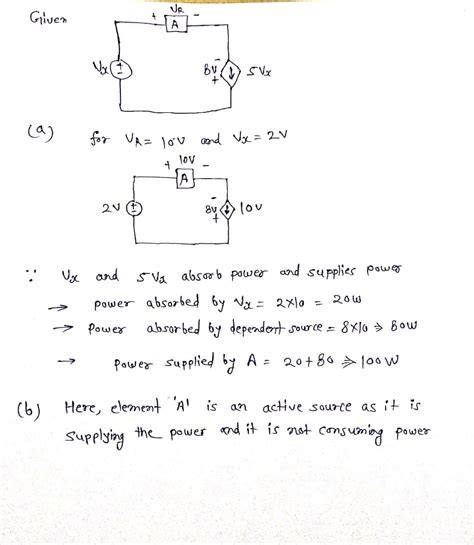 Given
+ VA -
A
Vx
8V
-
+
5Vx
(a) for VA = 10V and Vx = 2V
+ 10V -
A
2V
8V
-
+
10V
∵ Vx and 5Vx absorb power and supplies power
→ power absorbed by Vx = 2×10 = 20W
→ Power absorbed by dependent source = 8×10 ⇒ 80W
→ Power supplied by A = 20+80 ⇒ 100W
(b) Here, element 'A' is an active source as it is
supplying the power and it is not consuming power